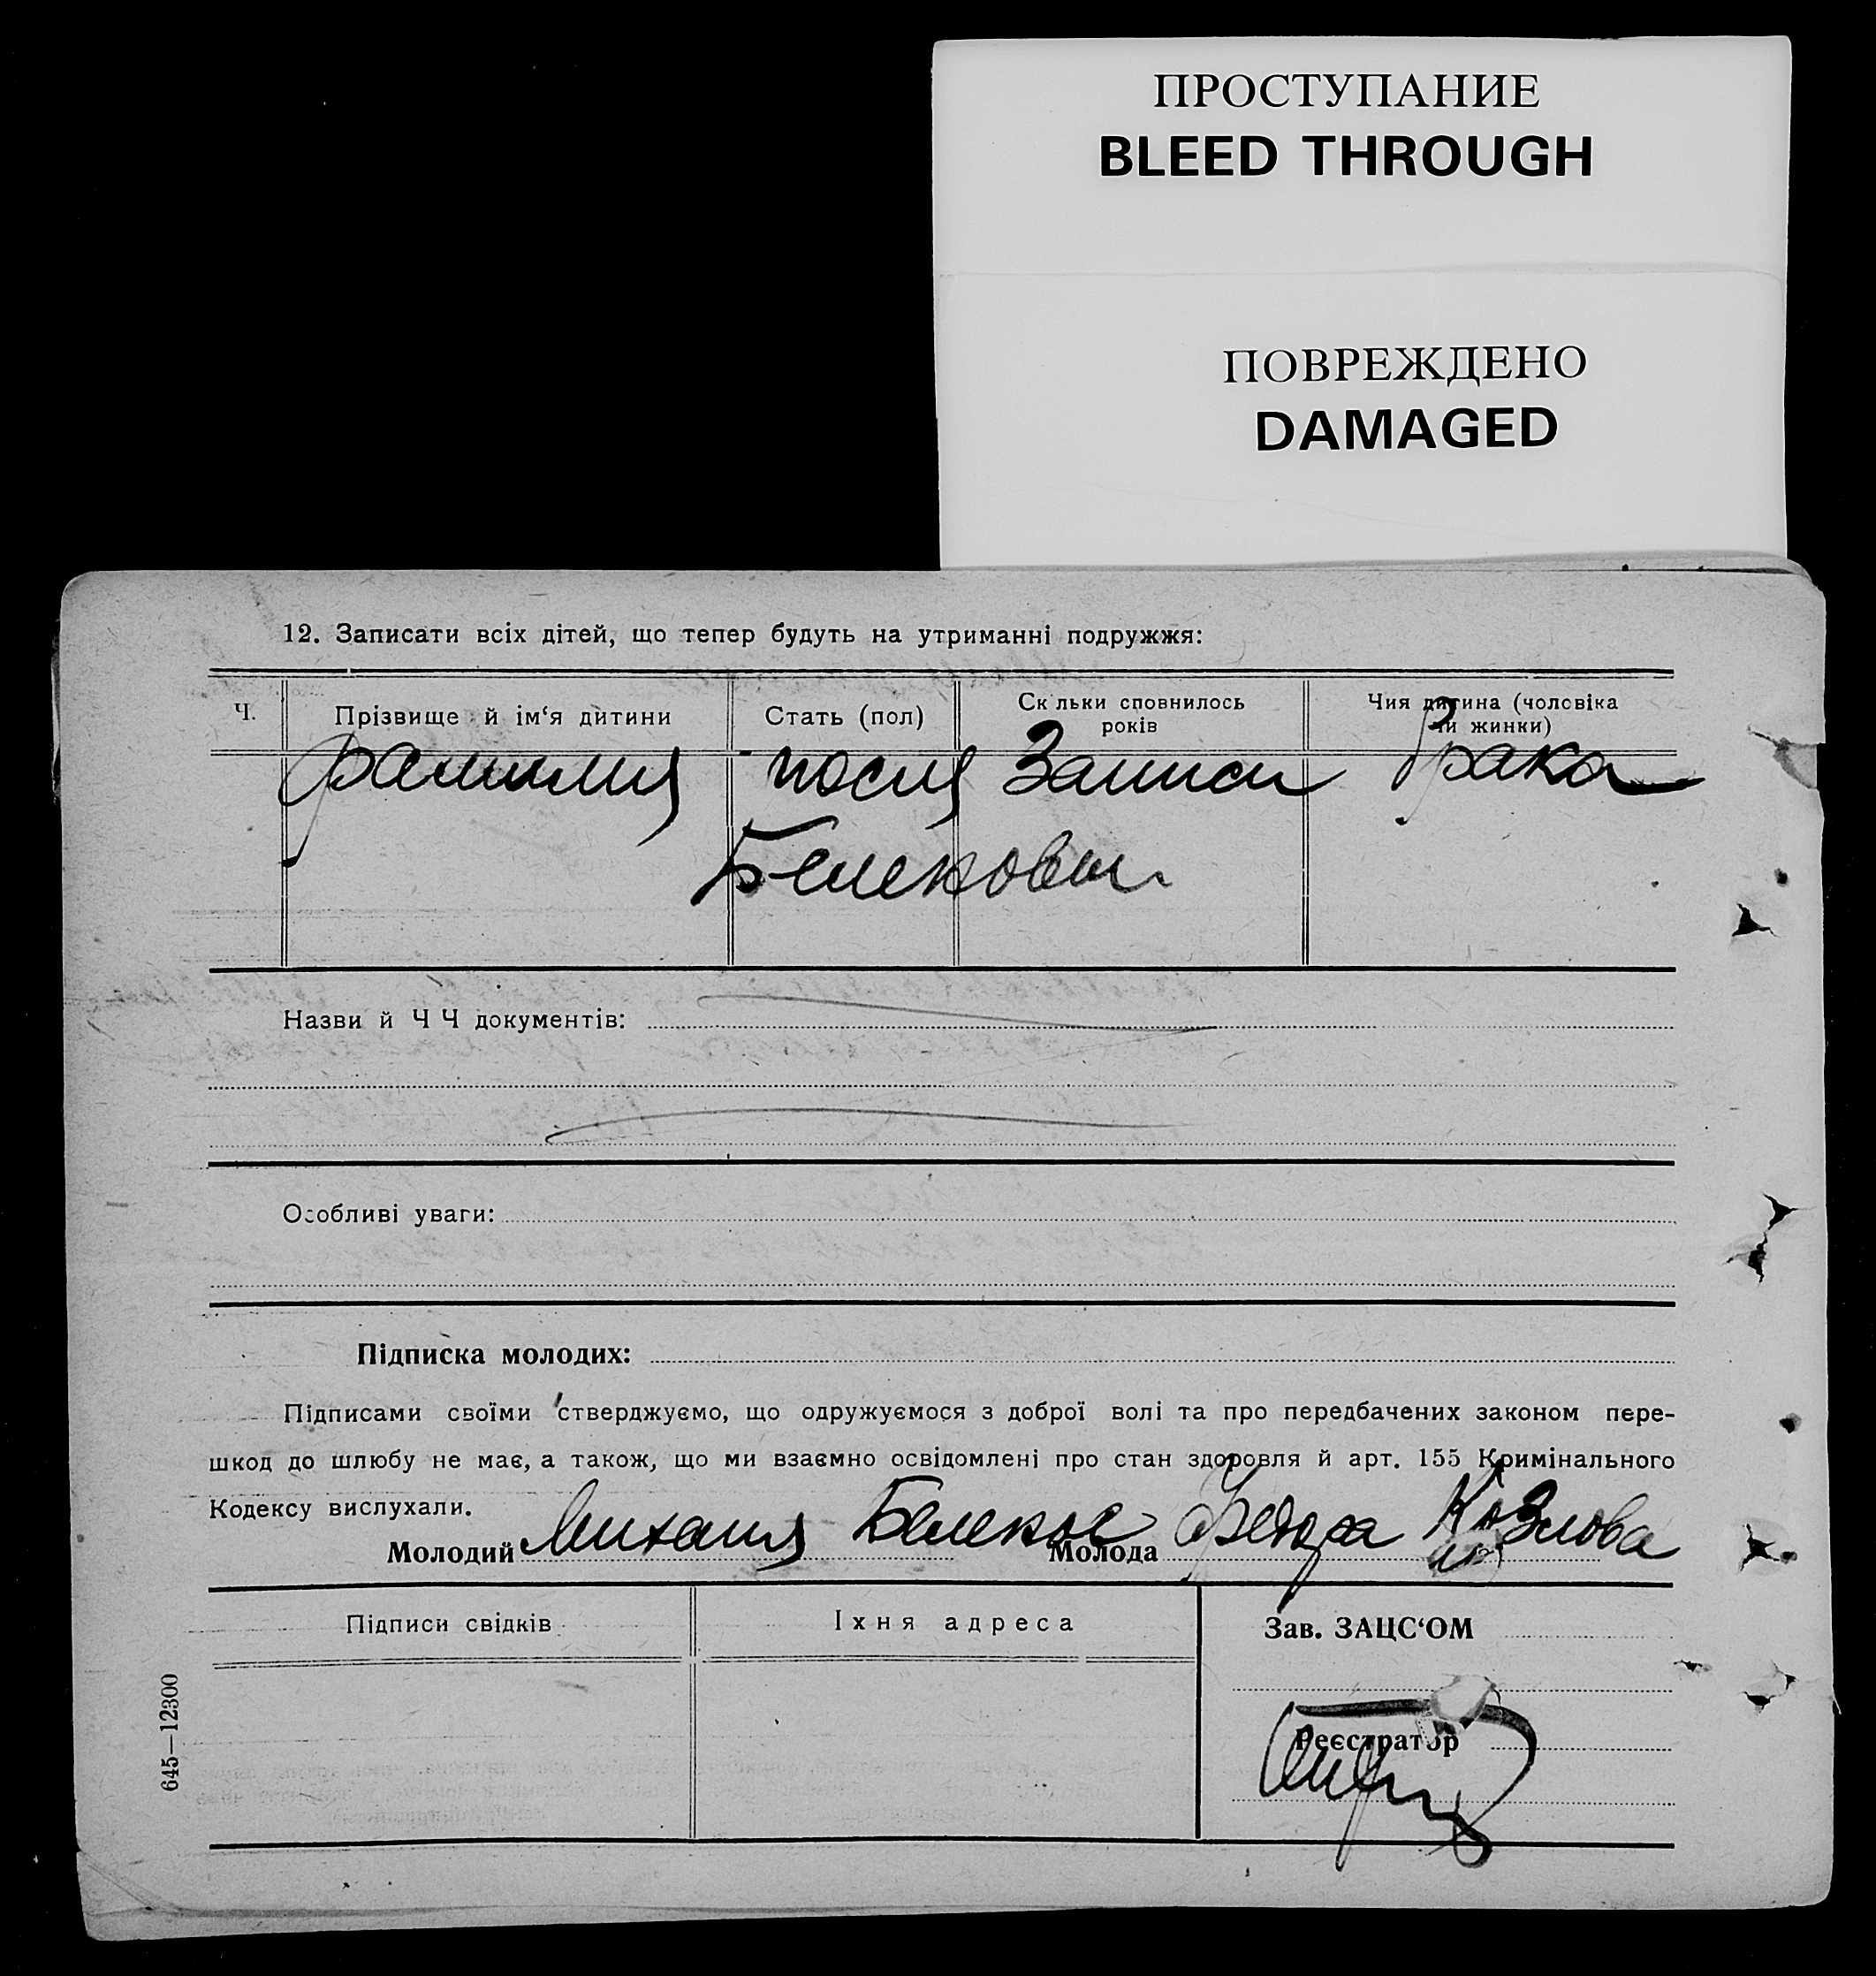 ПРОСТУПАНИЕ
BLEED THROUGH
ПОВРЕЖДЕНО
DAMAGED
12. Записати всіх дітей, що тепер будуть на утриманні подружжя:
Ч. Прізвище й ім‘я дитини Стать (пол) Ск льки сповнилось років Чия дитина (чоловіка чи жинки)
фамилия после Записи брака
Белековы
Назви й Ч Ч документів:
Особливі уваги:
Підписка молодих:
Підписами своїми стверджуємо, що одружуємося з доброї волі та про передбачених законом пере-
шкод до шлюбу не має, а також, що ми взаємно освідомлені про стан здоровля й арт. 155 Кримінального
Кодексу вислухали.
Молодий Михаил Молода Козлова
Підписи свідків Іхня адреса Зав. ЗАЦС‘ОМ
Реєстратор
645—12300